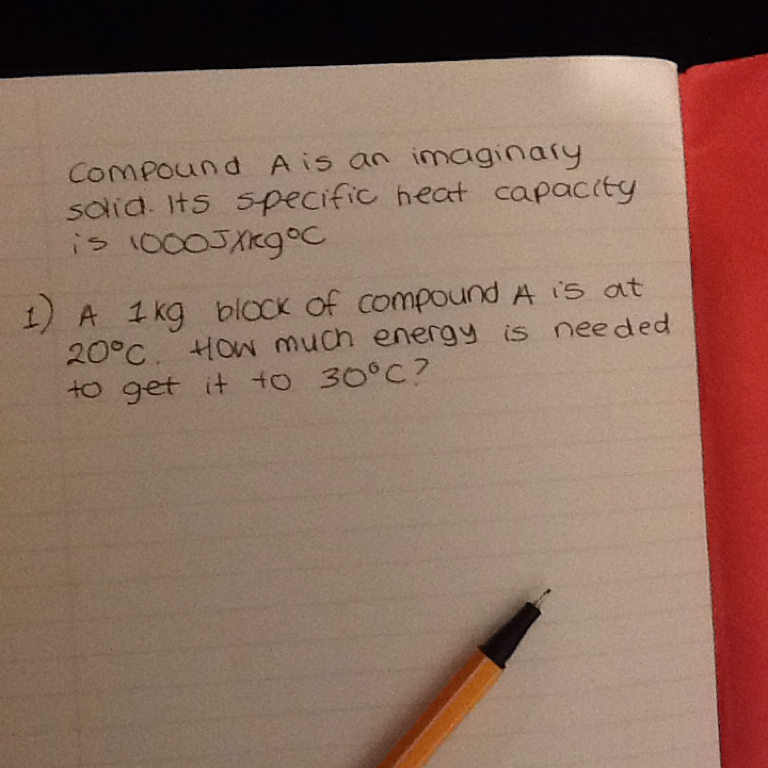 Compound A is an imaginary
solid. Its specific heat capacity
is 1000J/kg°C
1) A 1kg block of compound A is at
20°C. How much energy is needed
to get it to 30°C?